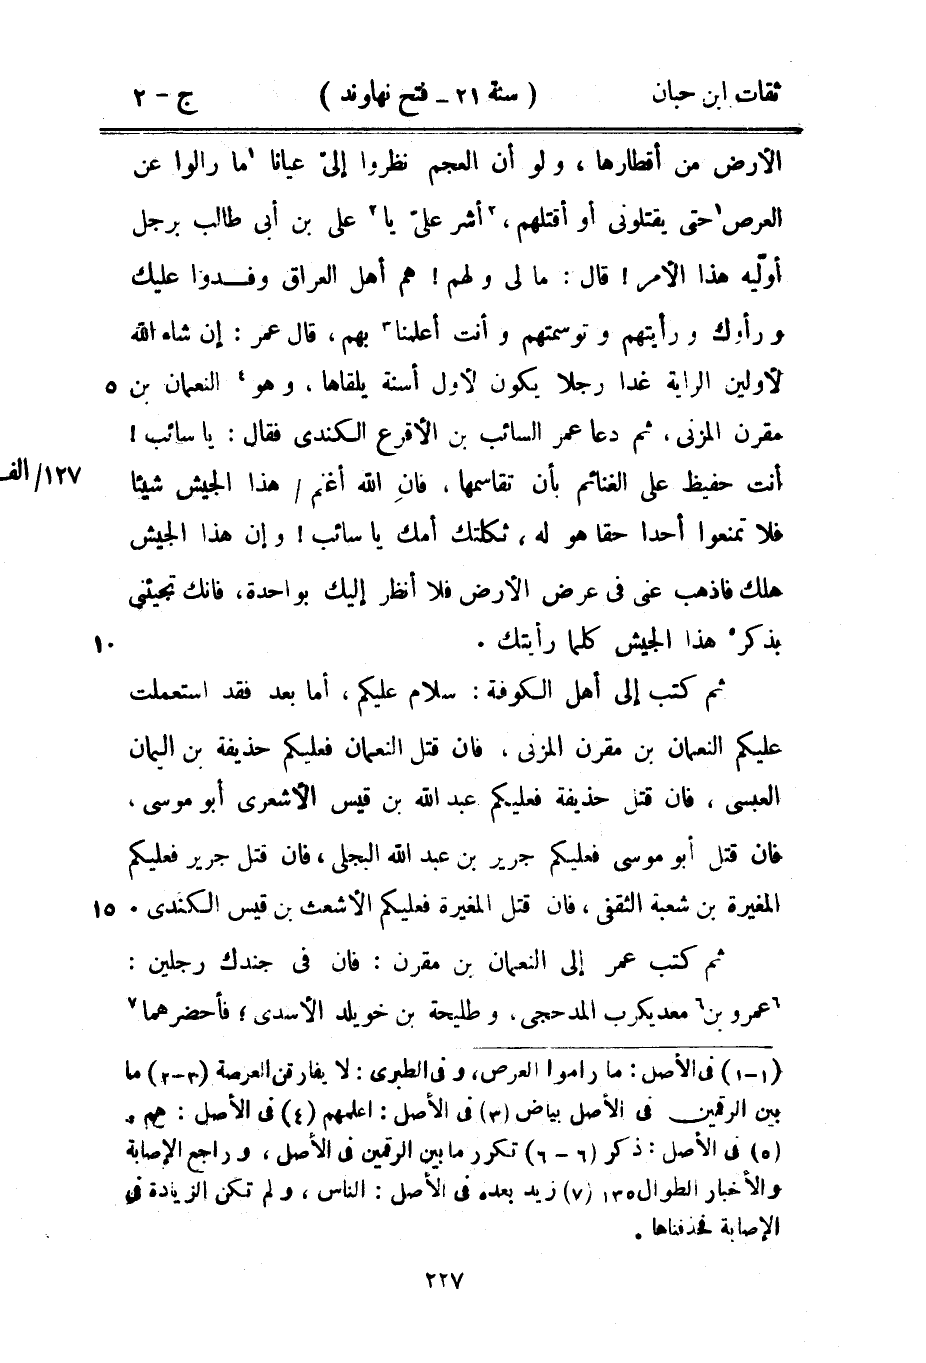 ثقات ابن حبان ( سنة ٢١ ـ فتح نهاوند ) ج - ٢
الأرض من أقطارها ، و لو أن العجم نظروا إلىّ عيانا ١ما زالوا عن
العرص١ حتى يقتلونى أو أقتلهم ، ٢أشر علىّ يا٢ على بن أبى طالب برجل
أولّيه هذا الأمر ! قال : ما لى و لهم ! هم أهل العراق وفـــدوا عليك
و رأوك و رأيتهم و توسمتهم و أنت أعلمنا٣ بهم ، قال عمر : إن شاء الله
لأولين الراية غدا رجلا يكون لأول أسنة يلقاها ، و هو٤ النعمان بن ٥
مقرن المزنى ، ثم دعا عمر السائب بن الأقرع الكندى فقال : يا سائب !
أنت حفيظ على الغنائم بأن تقاسمها ، فان الله أغنم / هذا الجيش شيئا ١٢٧/ الف
فلا تمنعوا أحدا حقا هو له ، ثكلتك أمك يا سائب ! و إن هذا الجيش
هلك فاذهب عنى فى عرض الأرض فلا أنظر إليك بواحدة ، فانك تجيئنى
بذكر٥ هذا الجيش كلما رأيتك . ١٠
ثم كتب إلى أهل الكوفة : سلام عليكم ، أما بعد فقد استعملت
عليكم النعمان بن مقرن المزنى ، فان قتل النعمان فعليكم حذيفة بن اليمان
العبسى ، فان قتل حذيفة فعليكم عبد الله بن قيس الأشعرى أبو موسى ،
فان قتل أبو موسى فعليكم جرير بن عبد الله البجلى ، فان قتل جرير فعليكم
المغيرة بن شعبة الثقفى ، فان قتل المغيرة فعليكم الأشعث بن قيس الكندى . ١٥
ثم كتب عمر إلى النعمان بن مقرن : فان فى جندك رجلين :
٦عمرو بن٦ معديكرب المذحجى ، و طليحة بن خويلد الأسدى ؛ فأحضرهما٧
(١-١) فى الأصل : ما راموا العرص ، و فى الطبرى : لا يفارقن العرصة (٢-٢) ما
بين الرقمين فى الأصل بياض (٣) فى الأصل : اعلمهم (٤) فى الأصل : هم .
(٥) فى الأصل : ذكر (٦ - ٦) تكرر ما بين الرقمين فى الأصل ، و راجع الإصابة
والأخبار الطوال ١٣٥ (٧) زيد بعده فى الأصل : الناس ، و لم تكن الزيادة فى
الإصابة فحذفناها .
٢٢٧